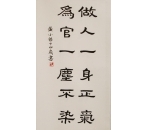 做人一身正氣
為官一塵不染